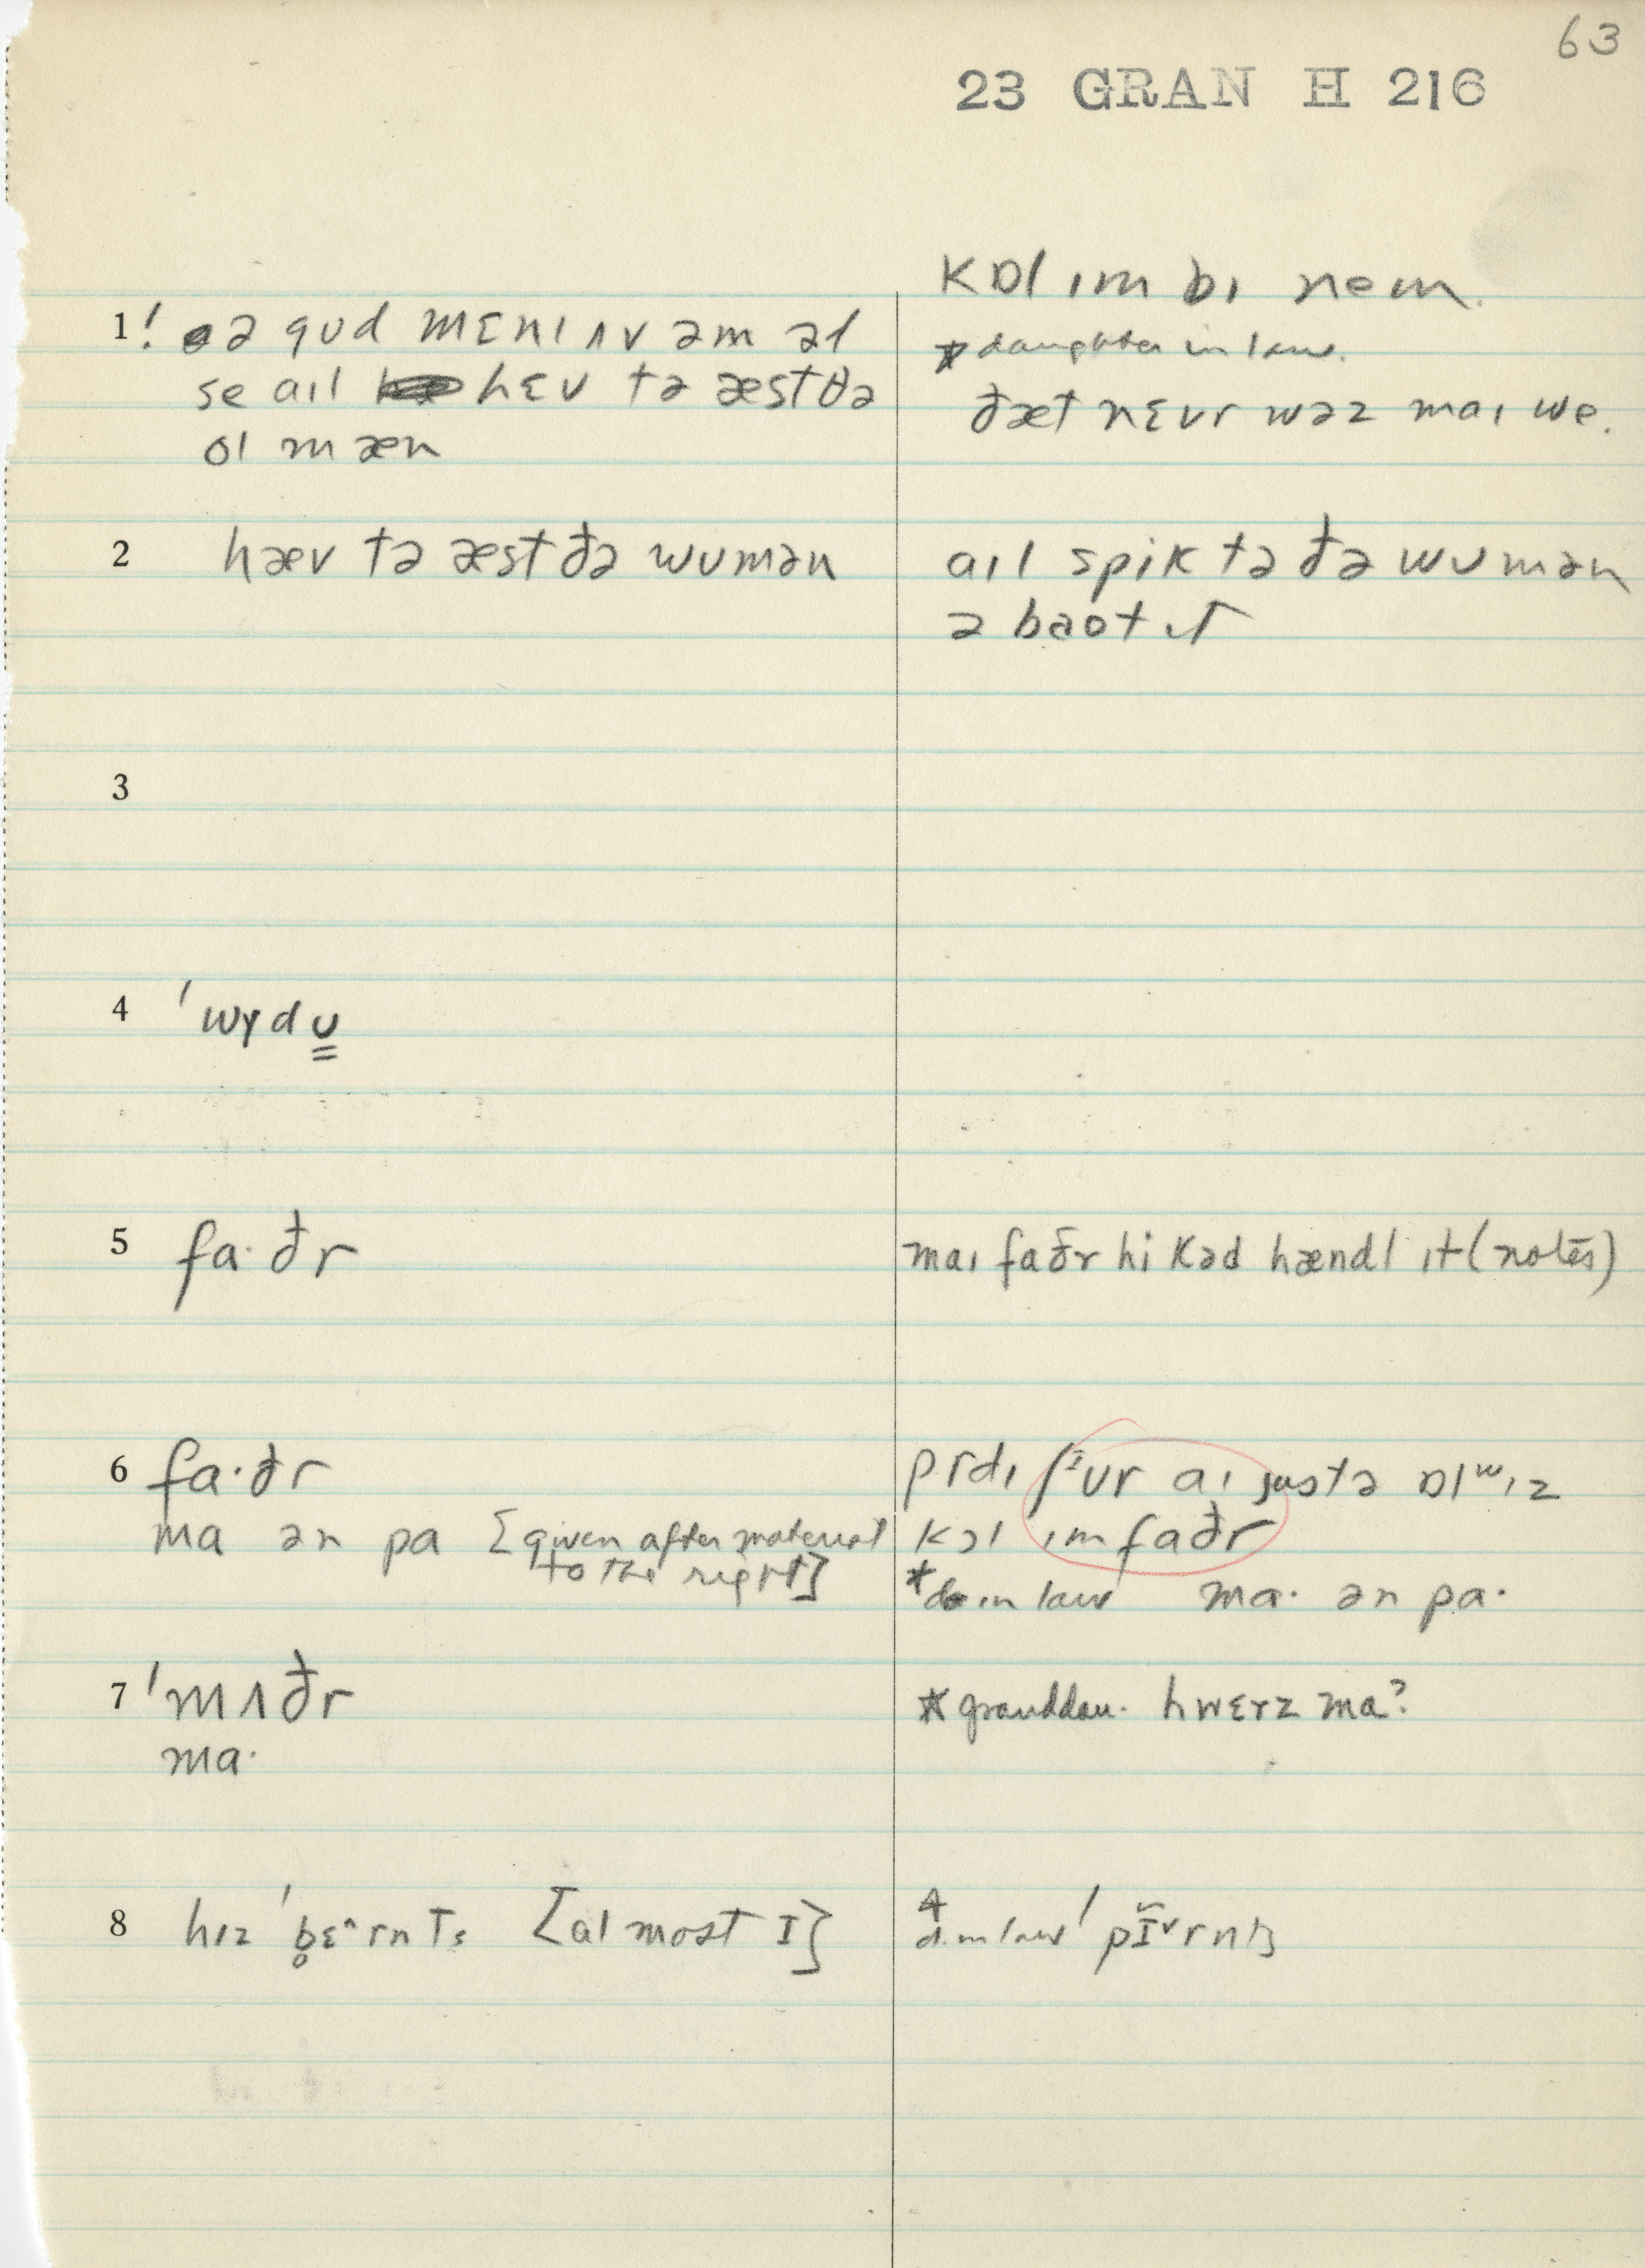 63
23 GRAN H 216
kɒl ɪm bɪ nem.
1! ə gʊd mɛnɪ ʌv əm əl
* daughter in law.
se aɪl hɛv tə æst ðə
ðæt nɛvr wəz maɪ we.
ol mæn
2 hæv tə æst ðə wʊmən
aɪl spik tə ðə wʊmən
əbaot ɪt
3
4 ˈwɣdʊ
5 fa·ðr
maɪ faðr hi kəd hændl ɪt (notes)
6 fa·ðr
prdɪ ʃᶦʊr aɪ justə ɒlʷɪz
ma ən pa [given after material
kɔl ɪm faðr
to the right]
* in law ma· ən pa·
7 ˈmʌðr
* granddau. hwɛrz ma?
ma·
8 hɪz ˈb̥ɛ^rnts [almost I]
d. in law ˈpĬˇrnts